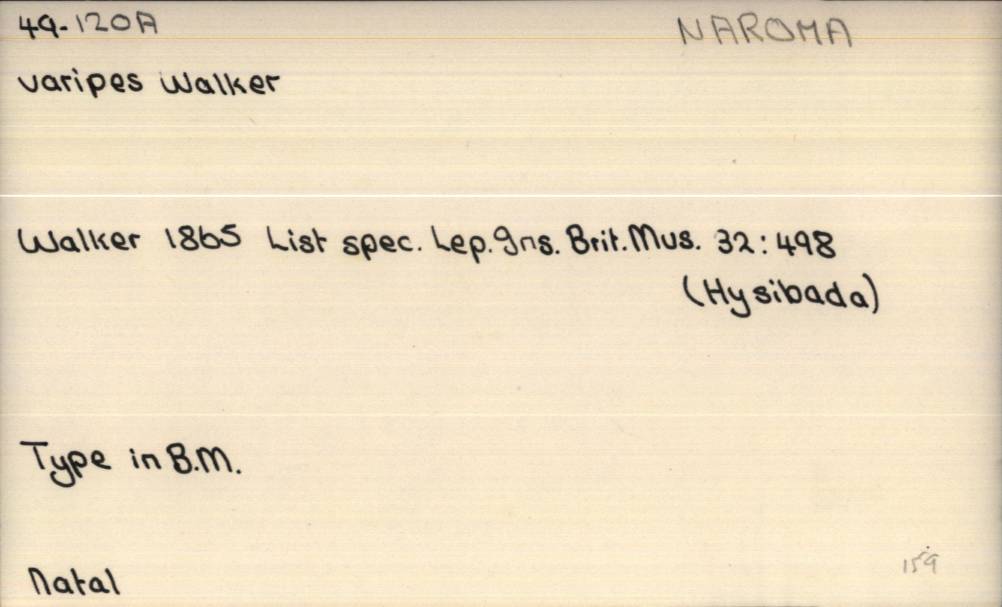 49-120A NAROMA
varipes Walker
Walker 1865 List spec. Lep. Ins. Brit. Mus. 32:498
(Hysibada)
Type in B.M.
Natal
159